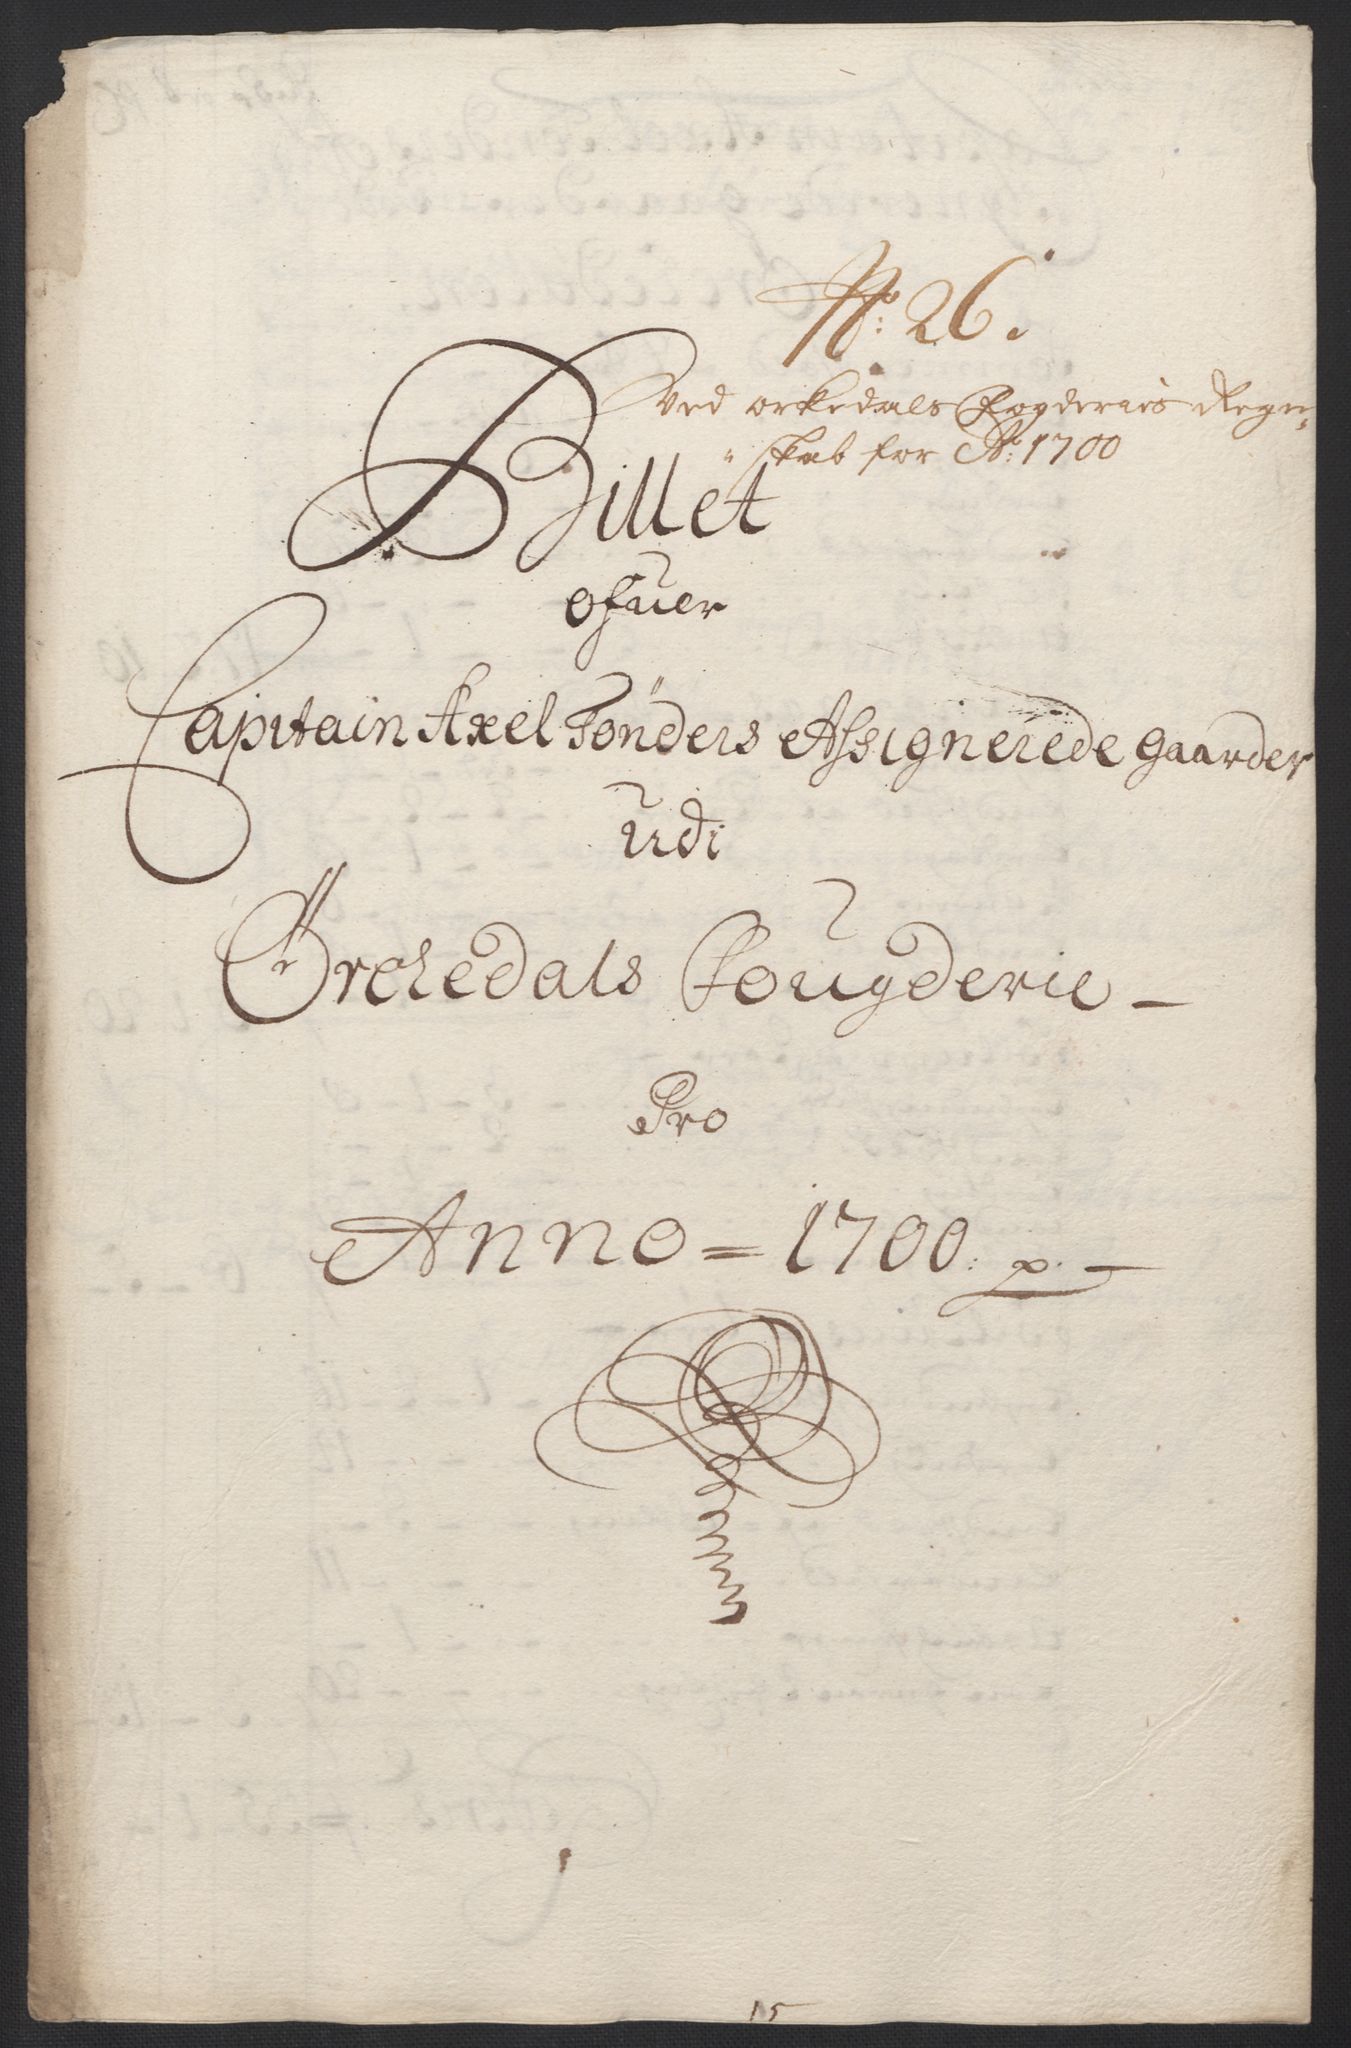 No: 26.
Ved orkedals Fogderies Regn-
skab for Ao: 1700
Billet
ofuer
Capitain Axel Tönders Assignerede gaarder
udi
Örckedals Fougderie -
Pro
Anno = 1700: p. -
15